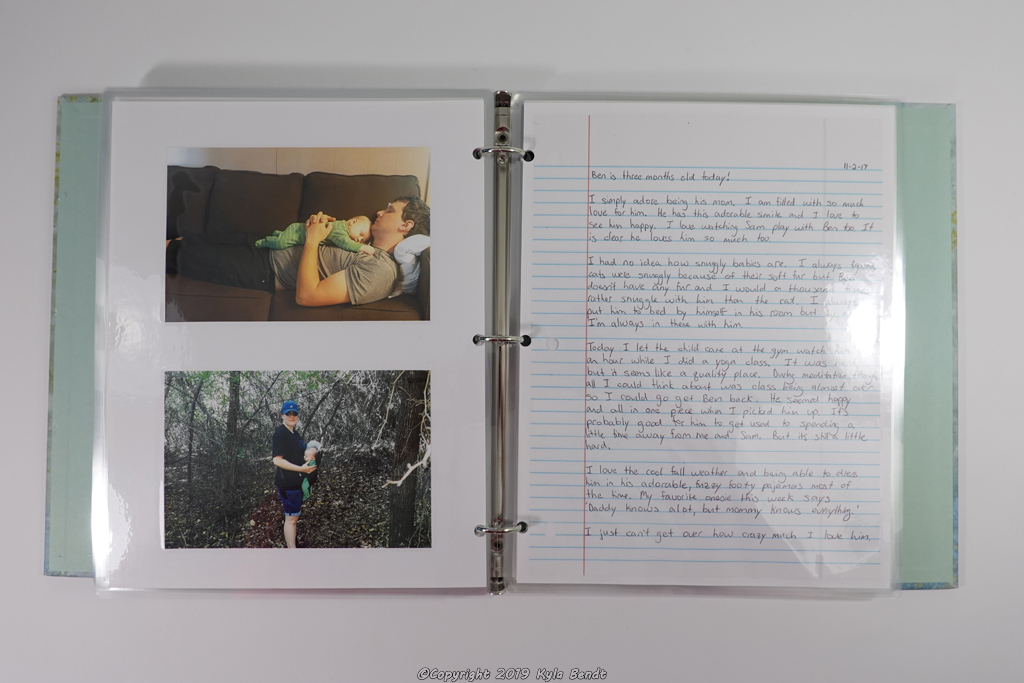 11-2-17
Ben is three months old today!
I simply adore being his mom. I am filled with so much
love for him. He has this adorable smile and I love to
see him happy. I love watching Sam play with Ben too. It
is clear he loves him so much too.
I had no idea how snuggly babies are. I always
cats were snuggly because of their soft fur but Ben
doesn't have any fur and I would a thousand times
rather snuggle with him than the cat. I always
put him to bed by himself in his room but
I'm always in there with him.
Today I let the child care at the gym watch him
an hour while I did a yoga class. It was
but it seems like a quality place. During meditation
all I could think about was class being almost over
so I could go get Ben back. He seemed happy
and all in one piece when I picked him up. It's
probably good for him to get used to spending a
little time away from me and Sam. But its still a little
hard.
I love the cool fall weather and being able to dress
him in his adorable, fuzzy footy pajamas most of
the time. My favorite onesie this week says
'Daddy knows a lot, but mommy knows everything.'
I just can't get over how crazy much I love him.
©Copyright 2019 Kyla Bendt